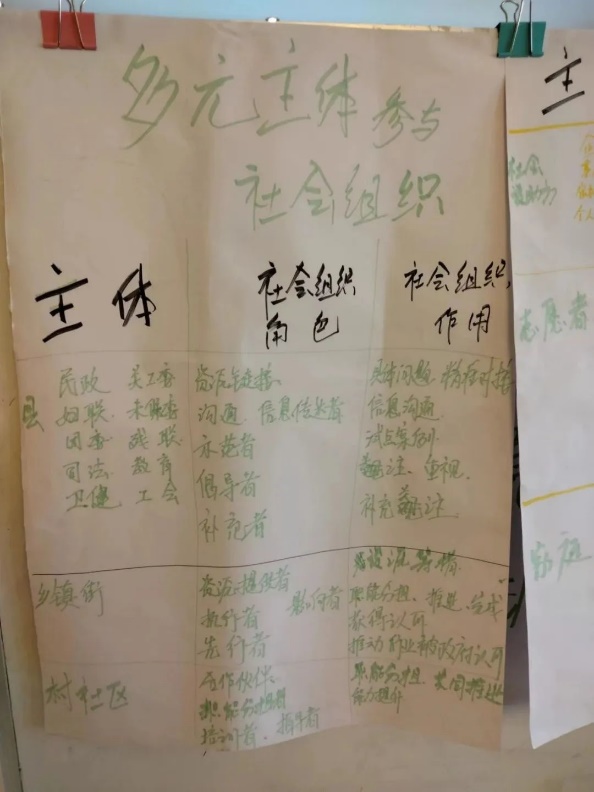 多元主体参与
社会组织
主体
社会组织
角色
社会组织
作用
县
民政 关工委
妇联 未保委
团委 残联
司法 教育
卫健 工会
资源链接、
沟通、信息传达者
示范者
倡导者
补充者
具体问题、精准对接
信息沟通
试点案例
关注、重视、
补充关注
乡镇街
资源提供者
执行者 影响者
先行者
职能分担、推进、完成
获得认可
推动 被政府认可
村社区
合作伙伴
职能分担者
培训者、指导者
职能分担 共同推进
能力提升
主
社会
个人
志愿者
家庭